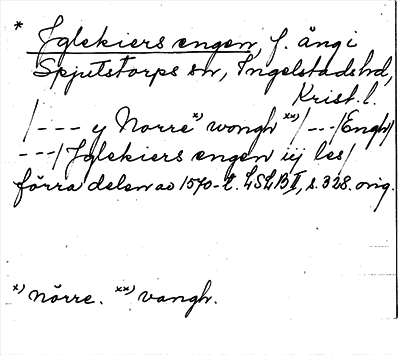 * Iglekiers engen, f. äng i
Spjutstorps sn, Ingelstads hd,
Krist. l.
/--- y Norre*) wongh **)/---/Engh/
---/Iglekiers engen iij les/
förra delen av 1570-t. LSLB II, s. 328. orig.
*) nörre. **) vangh.